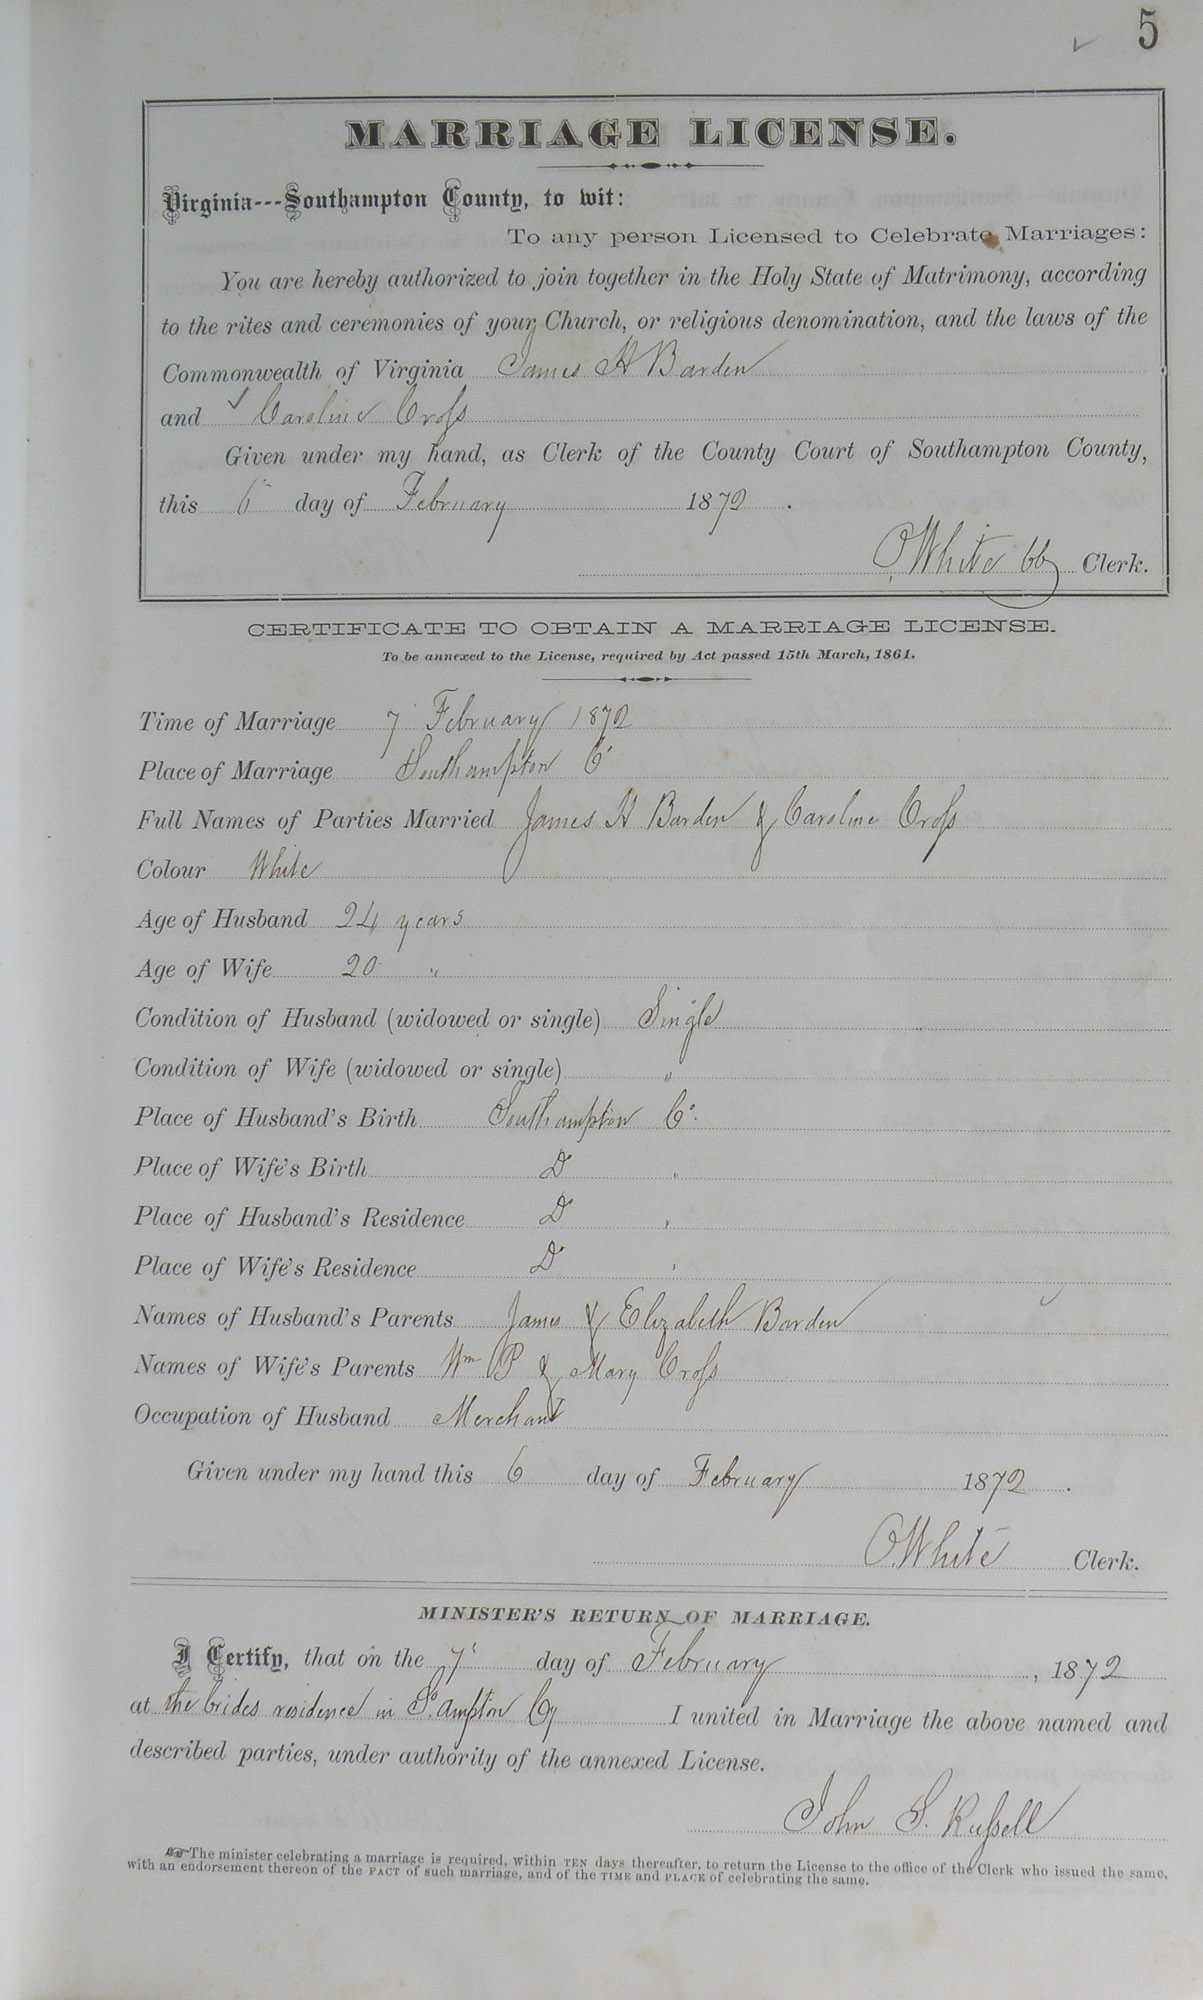 5
MARRIAGE LICENSE.
Virginia---Southampton County, to wit:
To any person Licensed to Celebrate Marriages:
You are hereby authorized to join together in the Holy State of Matrimony, according
to the rites and ceremonies of your Church, or religious denomination, and the laws of the
Commonwealth of Virginia James H Barden
and Caroline Cross
Given under my hand, as Clerk of the County Court of Southampton County,
this 6 day of February 1872.
O. White Clerk.
CERTIFICATE TO OBTAIN A MARRIAGE LICENSE.
To be annexed to the License, required by Act passed 15th March, 1861.
Time of Marriage 7 February 1872
Place of Marriage Southampton Co
Full Names of Parties Married James H Barden & Caroline Cross
Colour White
Age of Husband 24 years
Age of Wife 20 "
Condition of Husband (widowed or single) Single
Condition of Wife (widowed or single) "
Place of Husband's Birth Southampton Co.
Place of Wife's Birth Do "
Place of Husband's Residence Do "
Place of Wife's Residence Do "
Names of Husband's Parents James & Elizabeth Barden
Names of Wife's Parents Wm P & Mary Cross
Occupation of Husband Merchant
Given under my hand this 6 day of February 1872.
O. White Clerk.
MINISTER'S RETURN OF MARRIAGE.
I Certify, that on the 7 day of February, 1872
at the brides residence in So.ampton Cy I united in Marriage the above named and
described parties, under authority of the annexed License.
John S. Russell
☞The minister celebrating a marriage is required, within TEN days thereafter, to return the License to the office of the Clerk who issued the same,
with an endorsement thereon of the FACT of such marriage, and of the TIME and PLACE of celebrating the same.